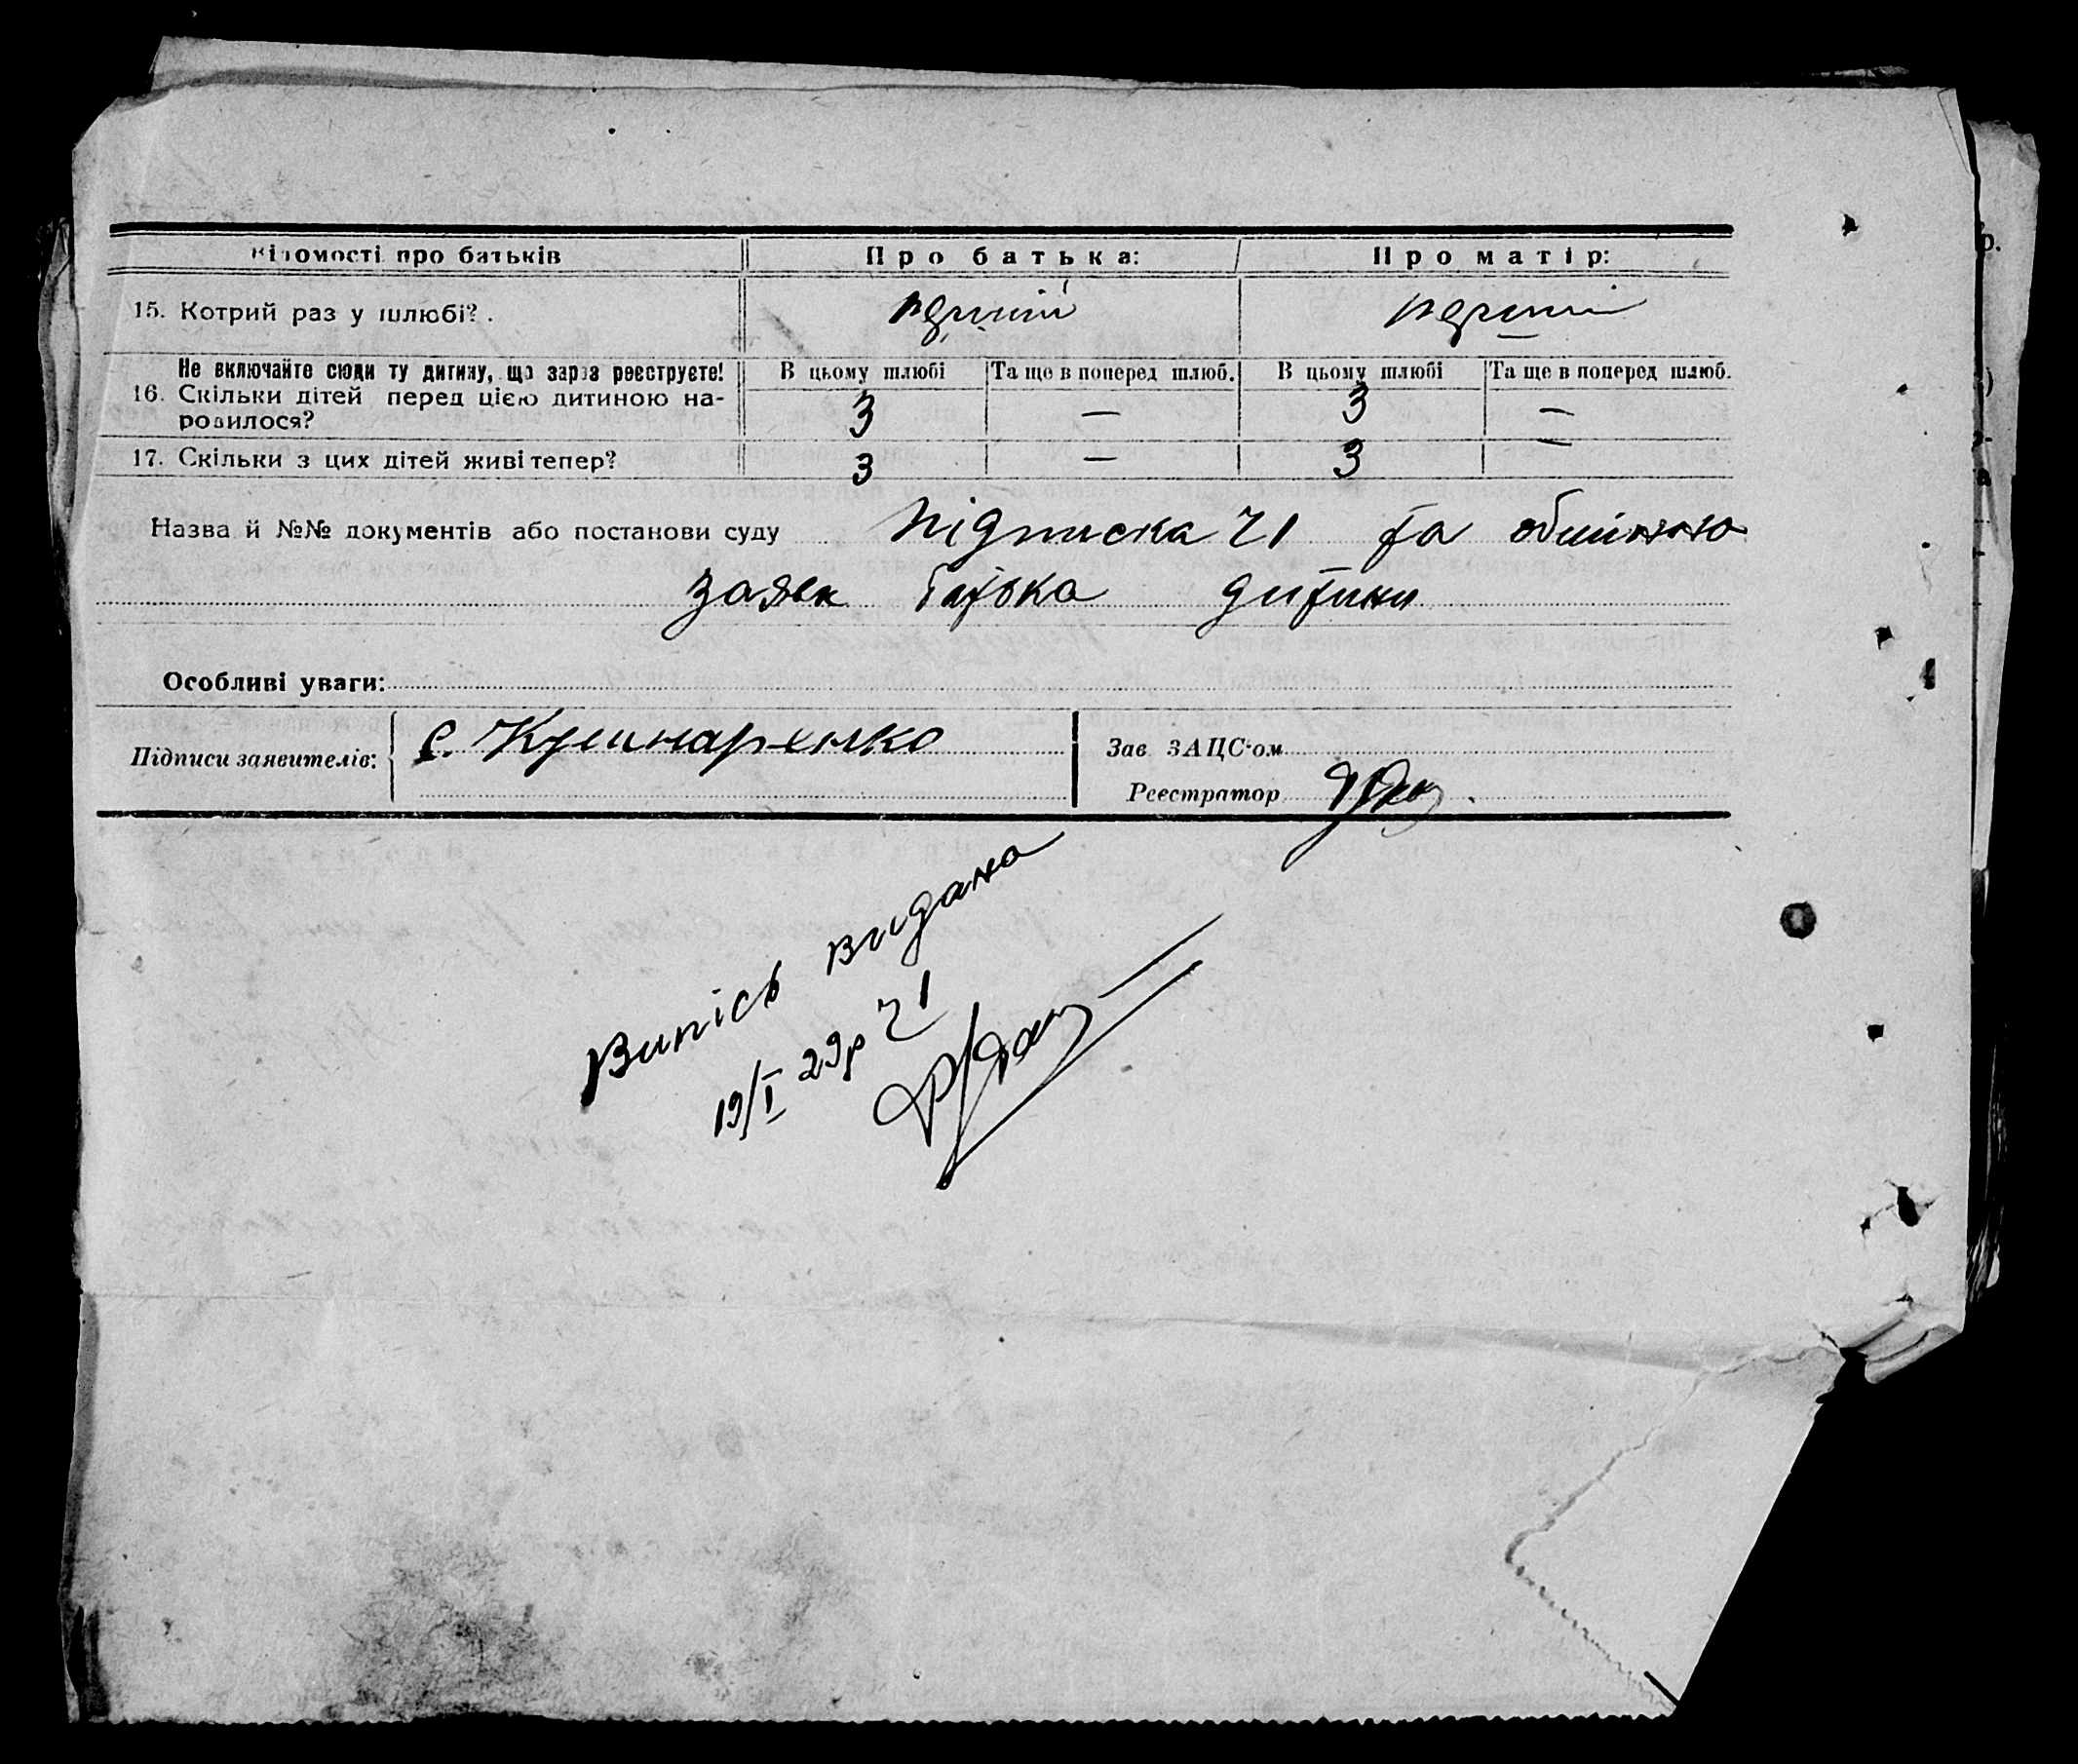 Відомості про батьків Про батька: Про матір:
15. Котрий раз у шлюбі? перший перший
Не включайте сюди ту дитину, що зараз реєструєте! В цьому шлюбі Та ще в поперед шлюб. В цьому шлюбі Та ще в поперед шлюб.
16. Скільки дітей перед цією дитиною на-
родилося? 3 — 3 —
17. Скільки з цих дітей живі тепер? 3 — 3 —
Назва й №№ документів або постанови суду підписка Ч1 та
заяви батька дитини
Особливі уваги:
Підписи заявителів: С. Кушнаренко Зав ЗАЦС‘ом
Реєстратор
Випісь видана
19/I 29р Ч1